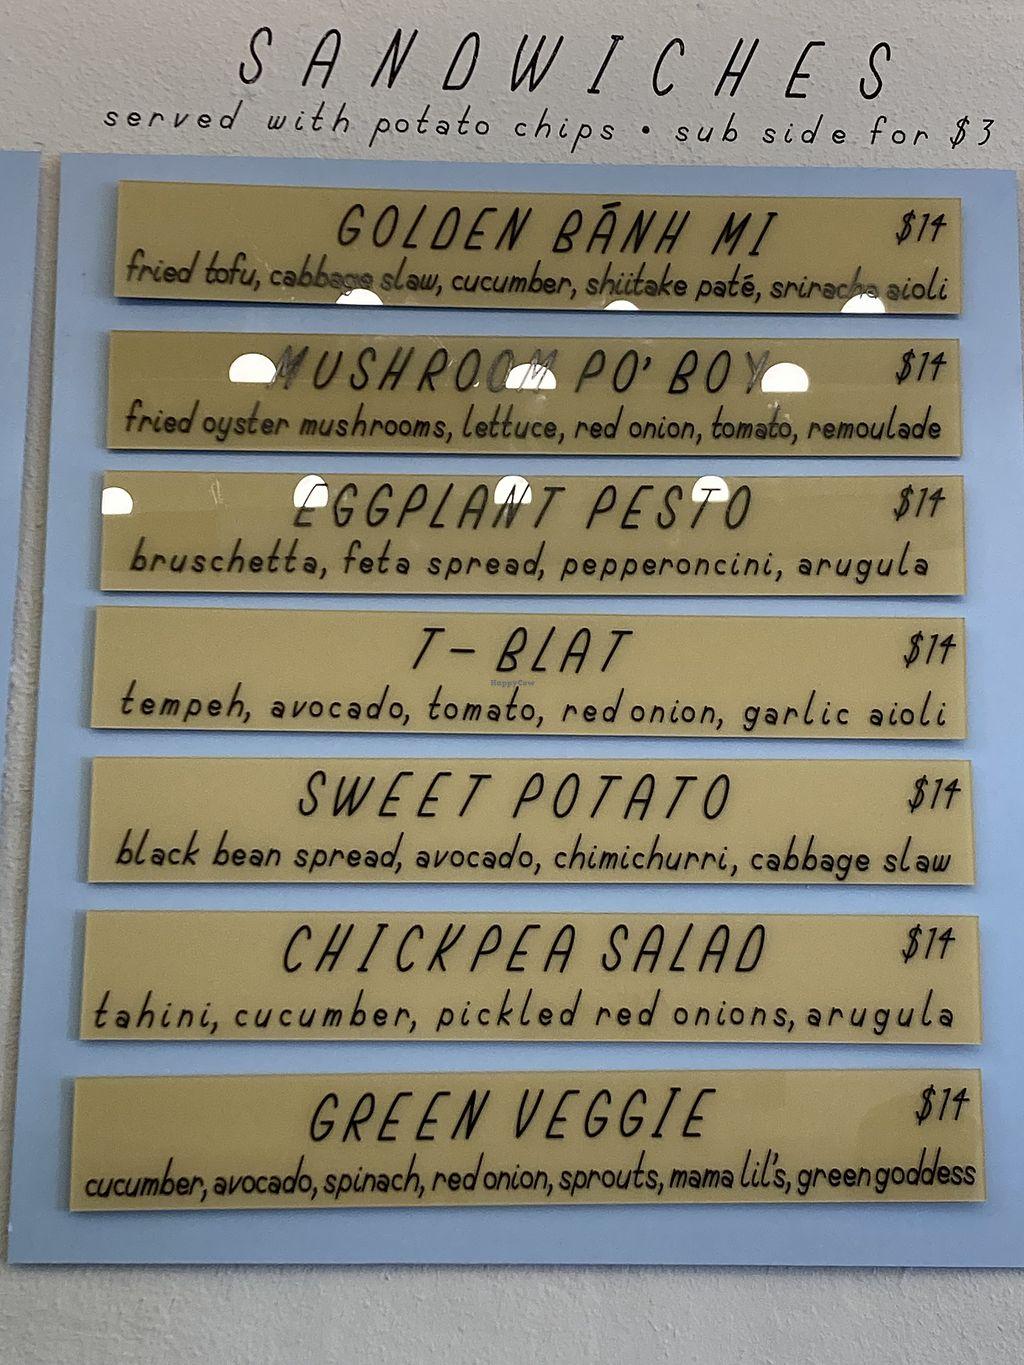 SANDWICHES
served with potato chips • sub side for $3
GOLDEN BÁNH MI $14
fried tofu, cabbage slaw, cucumber, shiitake paté, sriracha aioli
MUSHROOM PO' BOY $14
fried oyster mushrooms, lettuce, red onion, tomato, remoulade
EGGPLANT PESTO $14
bruschetta, feta spread, pepperoncini, arugula
T-BLAT $14
HappyCow
tempeh, avocado, tomato, red onion, garlic aioli
SWEET POTATO $14
black bean spread, avocado, chimichurri, cabbage slaw
CHICKPEA SALAD $14
tahini, cucumber, pickled red onions, arugula
GREEN VEGGIE $14
cucumber, avocado, spinach, red onion, sprouts, mama lil's, green goddess